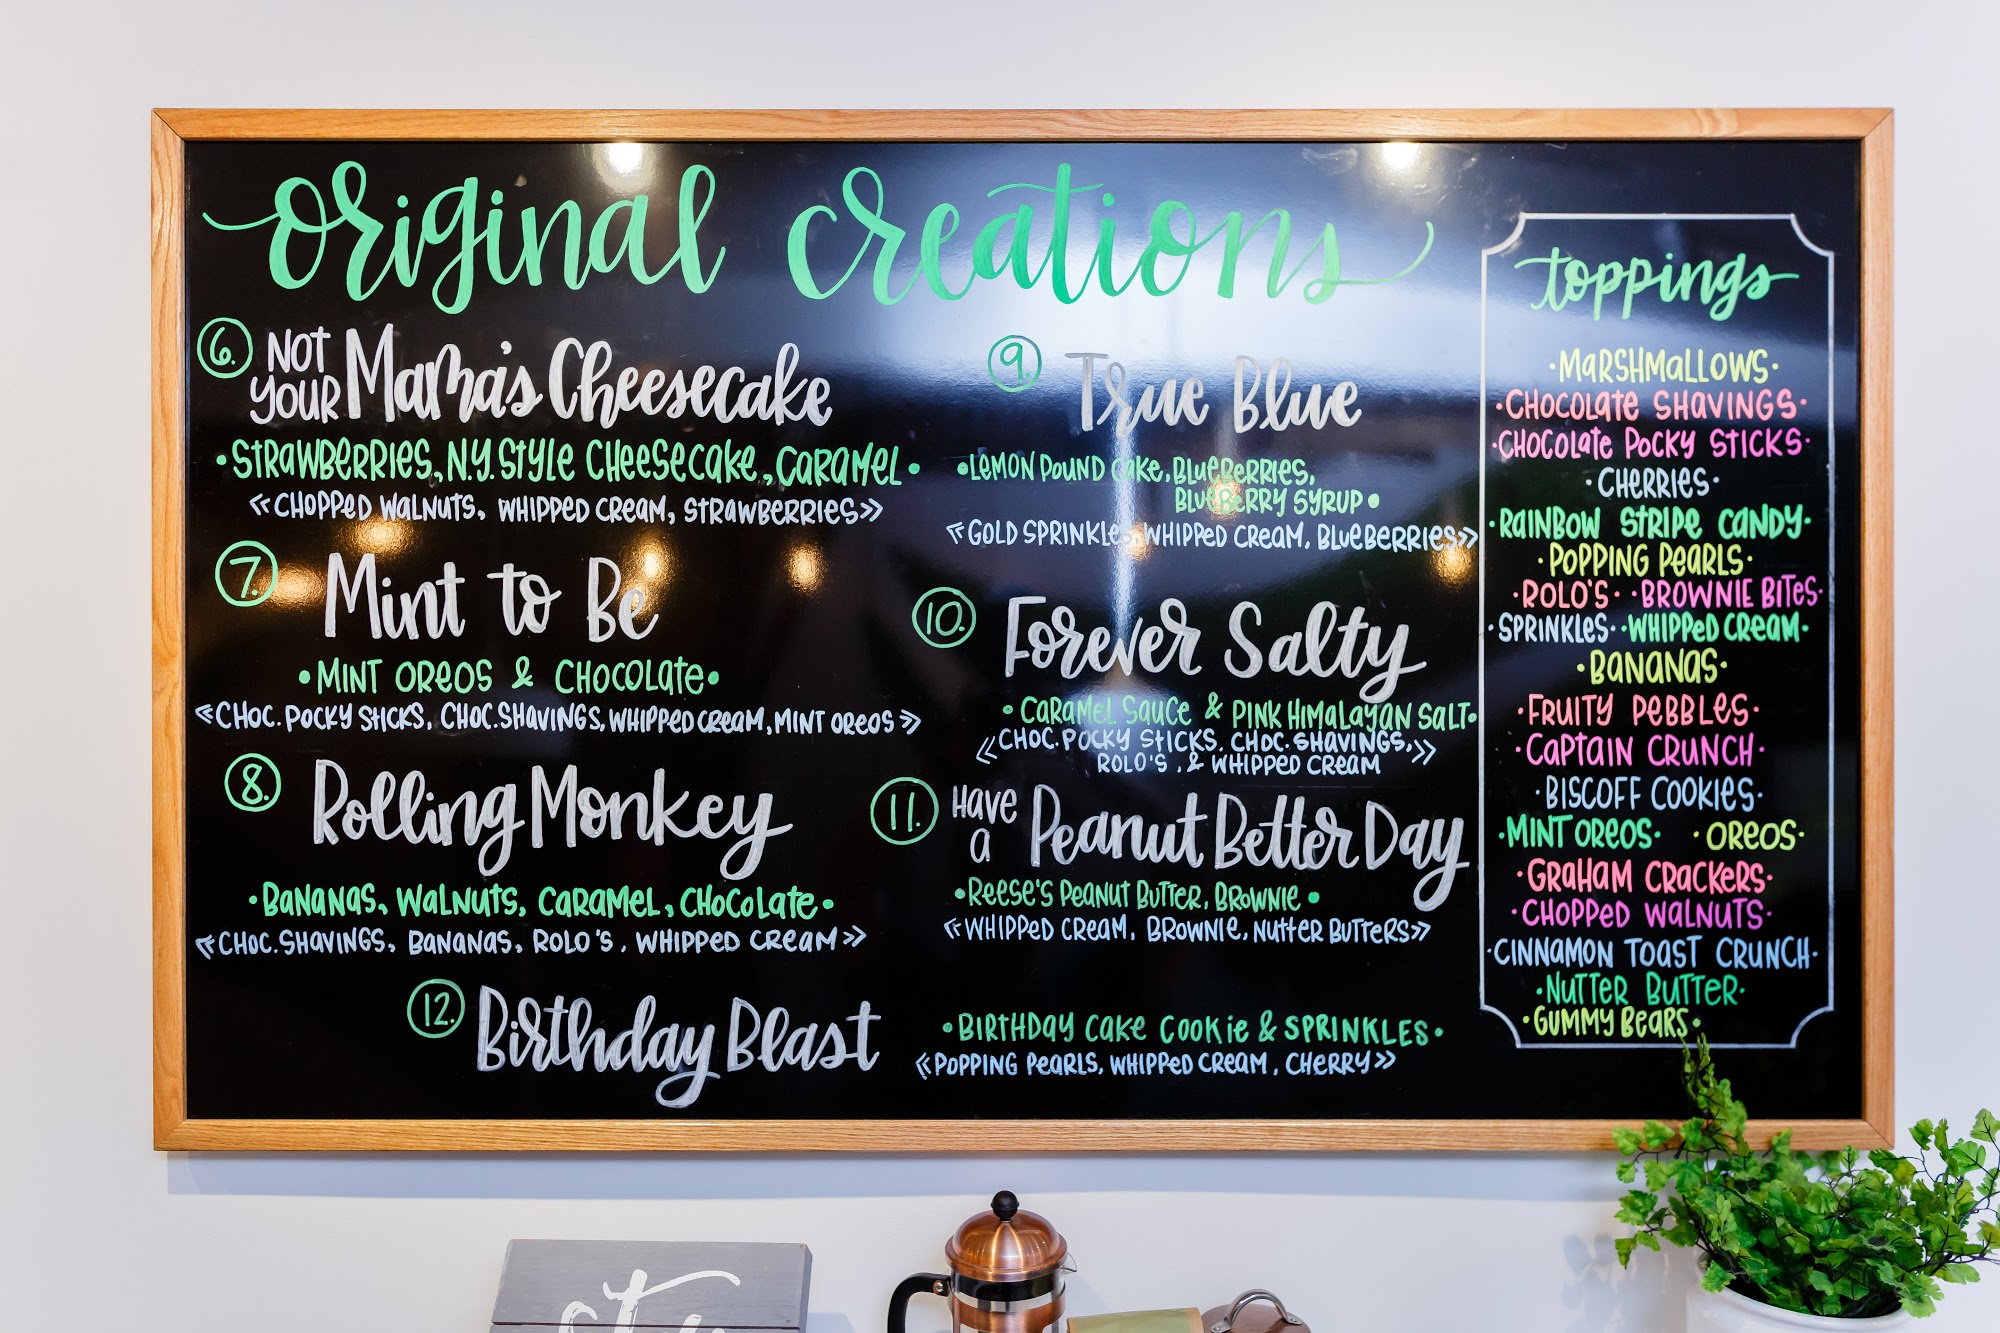 original creations
6. NOT YOUR Mama's Cheesecake
•STRAWBERRIES, N.Y. STYLE CHEESECAKE, CARAMEL•
«CHOPPED WALNUTS, WHIPPED CREAM, STRAWBERRIES»
7. Mint to Be
•MINT OREOS & CHOCOLATE•
«CHOC. POCKY STICKS, CHOC. SHAVINGS, WHIPPED CREAM, MINT OREOS»
8. Rolling Monkey
•BANANAS, WALNUTS, CARAMEL, CHOCOLATE•
«CHOC. SHAVINGS, BANANAS, ROLO'S, WHIPPED CREAM»
9. True Blue
•LEMON POUND CAKE, BLUEBERRIES,
BLUEBERRY SYRUP•
«GOLD SPRINKLES, WHIPPED CREAM, BLUEBERRIES»
10. Forever Salty
•CARAMEL SAUCE & PINK HIMALAYAN SALT•
«CHOC. POCKY STICKS, CHOC. SHAVINGS,
ROLO'S, & WHIPPED CREAM»
11. HAVE a Peanut Better Day
•REESE'S PEANUT BUTTER, BROWNIE•
«WHIPPED CREAM, BROWNIE, NUTTER BUTTERS»
12. Birthday Blast
•BIRTHDAY CAKE COOKIE & SPRINKLES•
«POPPING PEARLS, WHIPPED CREAM, CHERRY»
toppings
•MARSHMALLOWS•
•CHOCOLATE SHAVINGS•
•CHOCOLATE POCKY STICKS•
•CHERRIES•
•RAINBOW STRIPE CANDY•
•POPPING PEARLS•
•ROLO'S• •BROWNIE BITES•
•SPRINKLES• •WHIPPED CREAM•
•BANANAS•
•FRUITY PEBBLES•
•CAPTAIN CRUNCH•
•BISCOFF COOKIES•
•MINT OREOS• •OREOS•
•GRAHAM CRACKERS•
•CHOPPED WALNUTS•
•CINNAMON TOAST CRUNCH•
•NUTTER BUTTER•
•GUMMY BEARS•